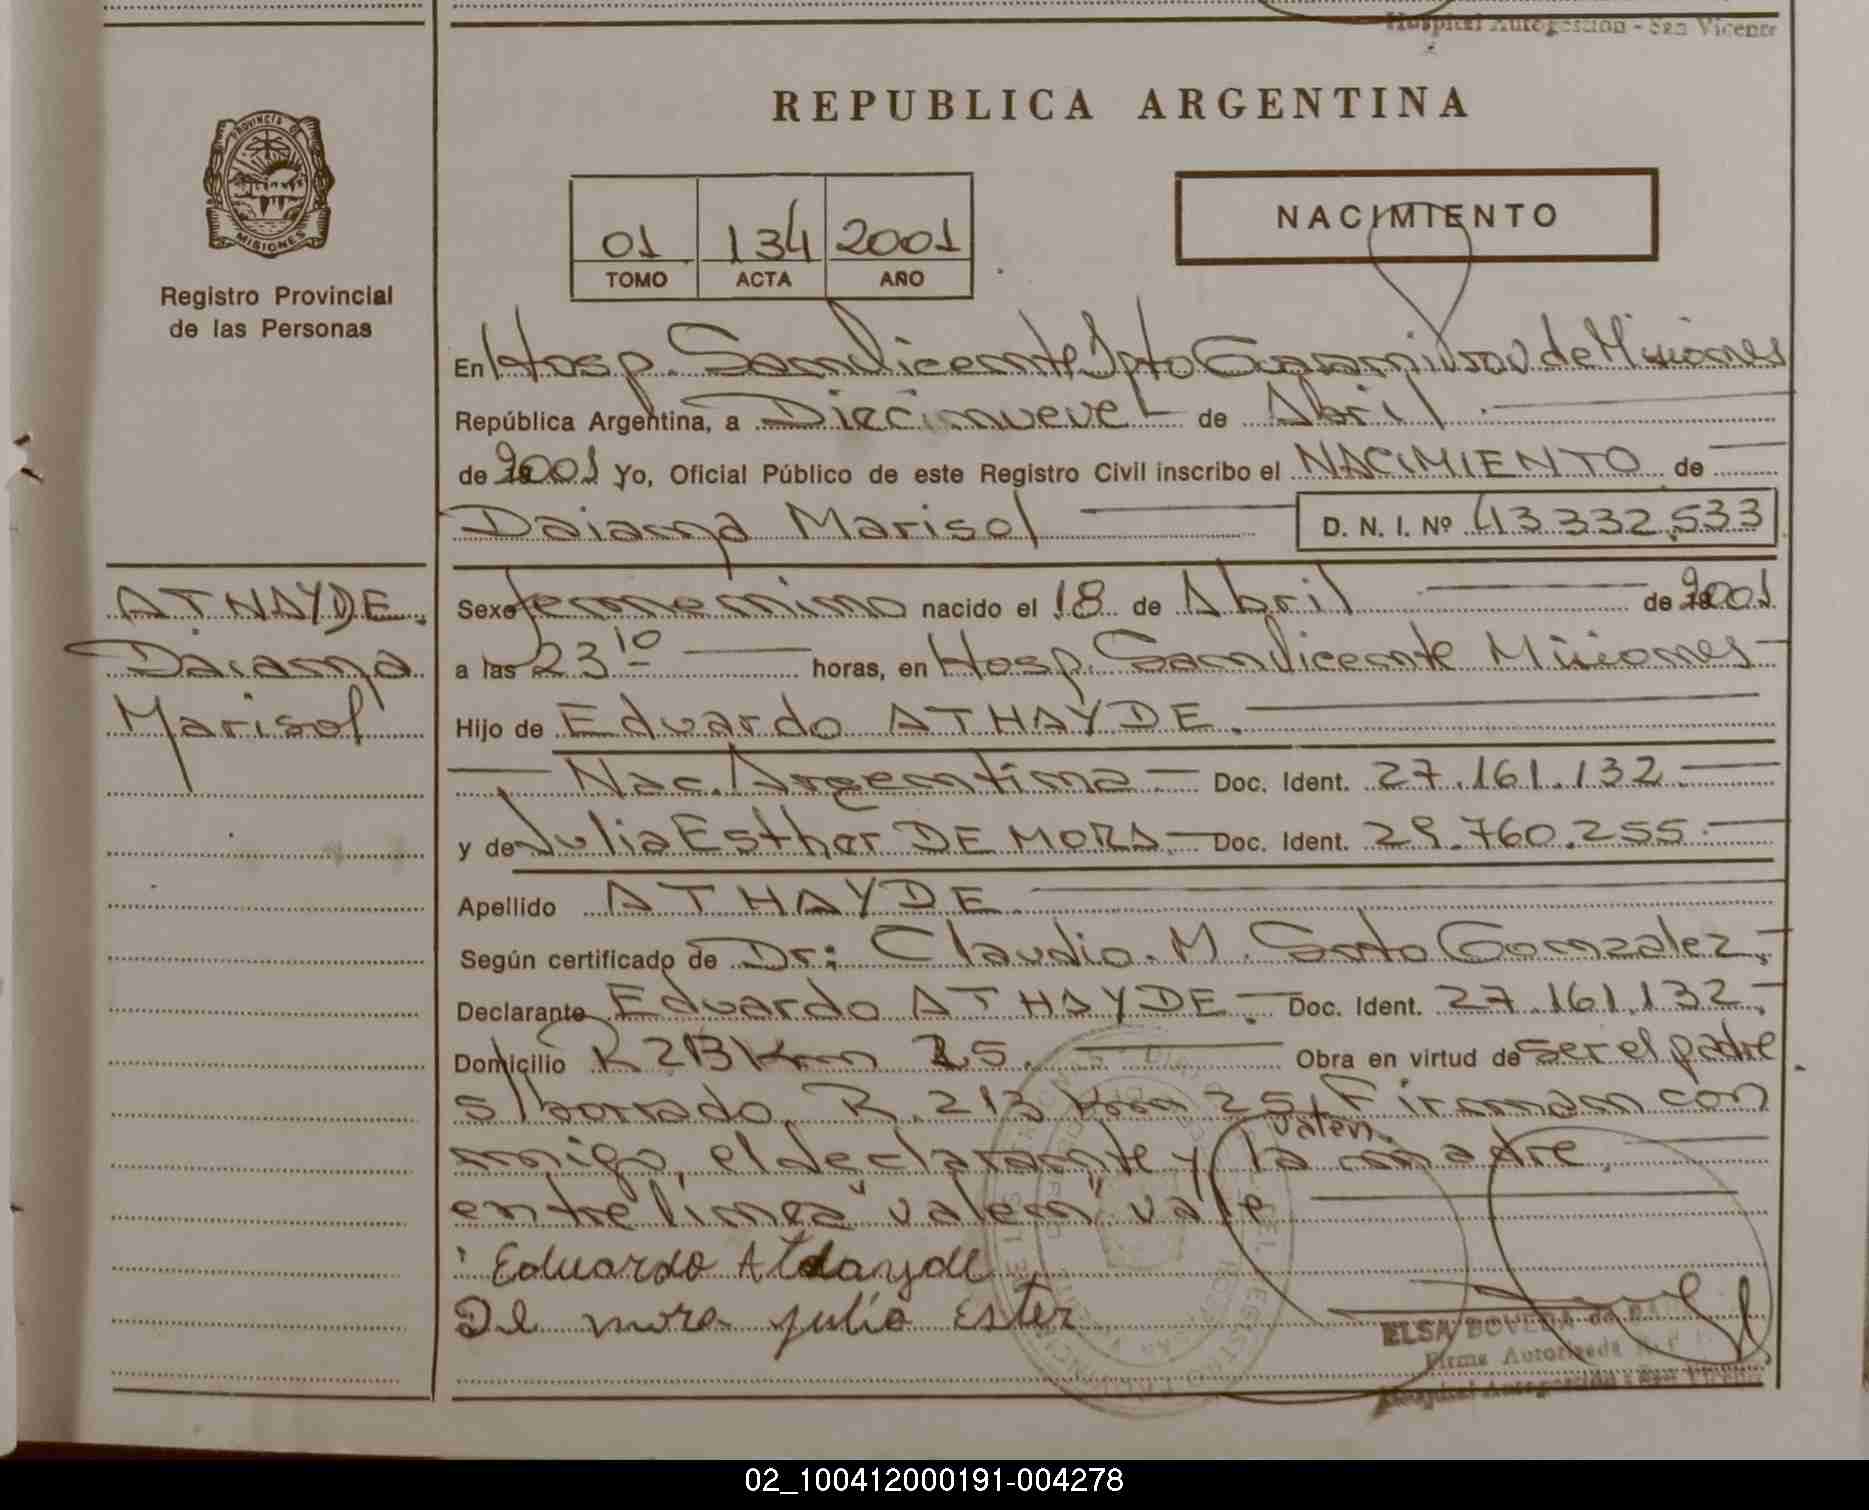 Hospital Autogestión - San Vicente
REPUBLICA ARGENTINA
PROVINCIA DE
MISIONES
Registro Provincial
de las Personas
01 134 2001
TOMO ACTA AÑO
NACIMIENTO
En Hosp. San Vicente Dpto Guaraní Prov. de Misiones
República Argentina, a Diecinueve de Abril
de 2001 Yo, Oficial Público de este Registro Civil inscribo el NACIMIENTO de
Daiana Marisol D. N. I. Nº 43 332.533
ATHAYDE.
Daiana
Marisol
Sexo femenino nacido el 18 de Abril de 2001
a las 23 10 horas, en Hosp. San Vicente Misiones
Hijo de Eduardo ATHAYDE.
Nac. Argentina Doc. Ident. 27.161.132
y de Julia Esther DE MORA Doc. Ident. 29.760.255
Apellido ATHAYDE
Según certificado de Dr: Claudio. M. Soto Gonzalez.
Declarante Eduardo ATHAYDE. Doc. Ident. 27.161.132
Domicilio R 213 Km 25. Obra en virtud de ser el padre
s/borrado. R. 213 Km 25, Firman con
valen.
migo, el declarante y la madre.
entre linea "valen" vale
Eduardo Athayde
De mora julia Ester
ELSA BOVEDA de
Firma Autorizada
Hospital Autogestión - San Vicente
02_100412000191-004278